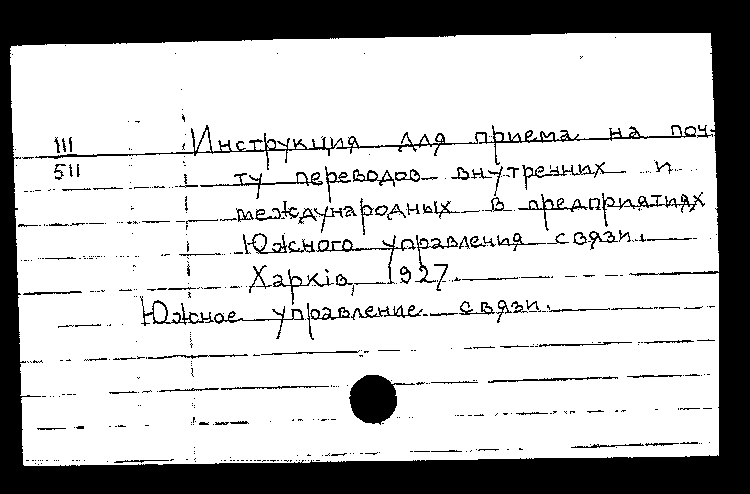 III
511
Инструкция для приема на поч-
ту переводов внутренних и
международных в предприятиях
Южного управления связи.
Харкiв, 1927
Южное управление связи.